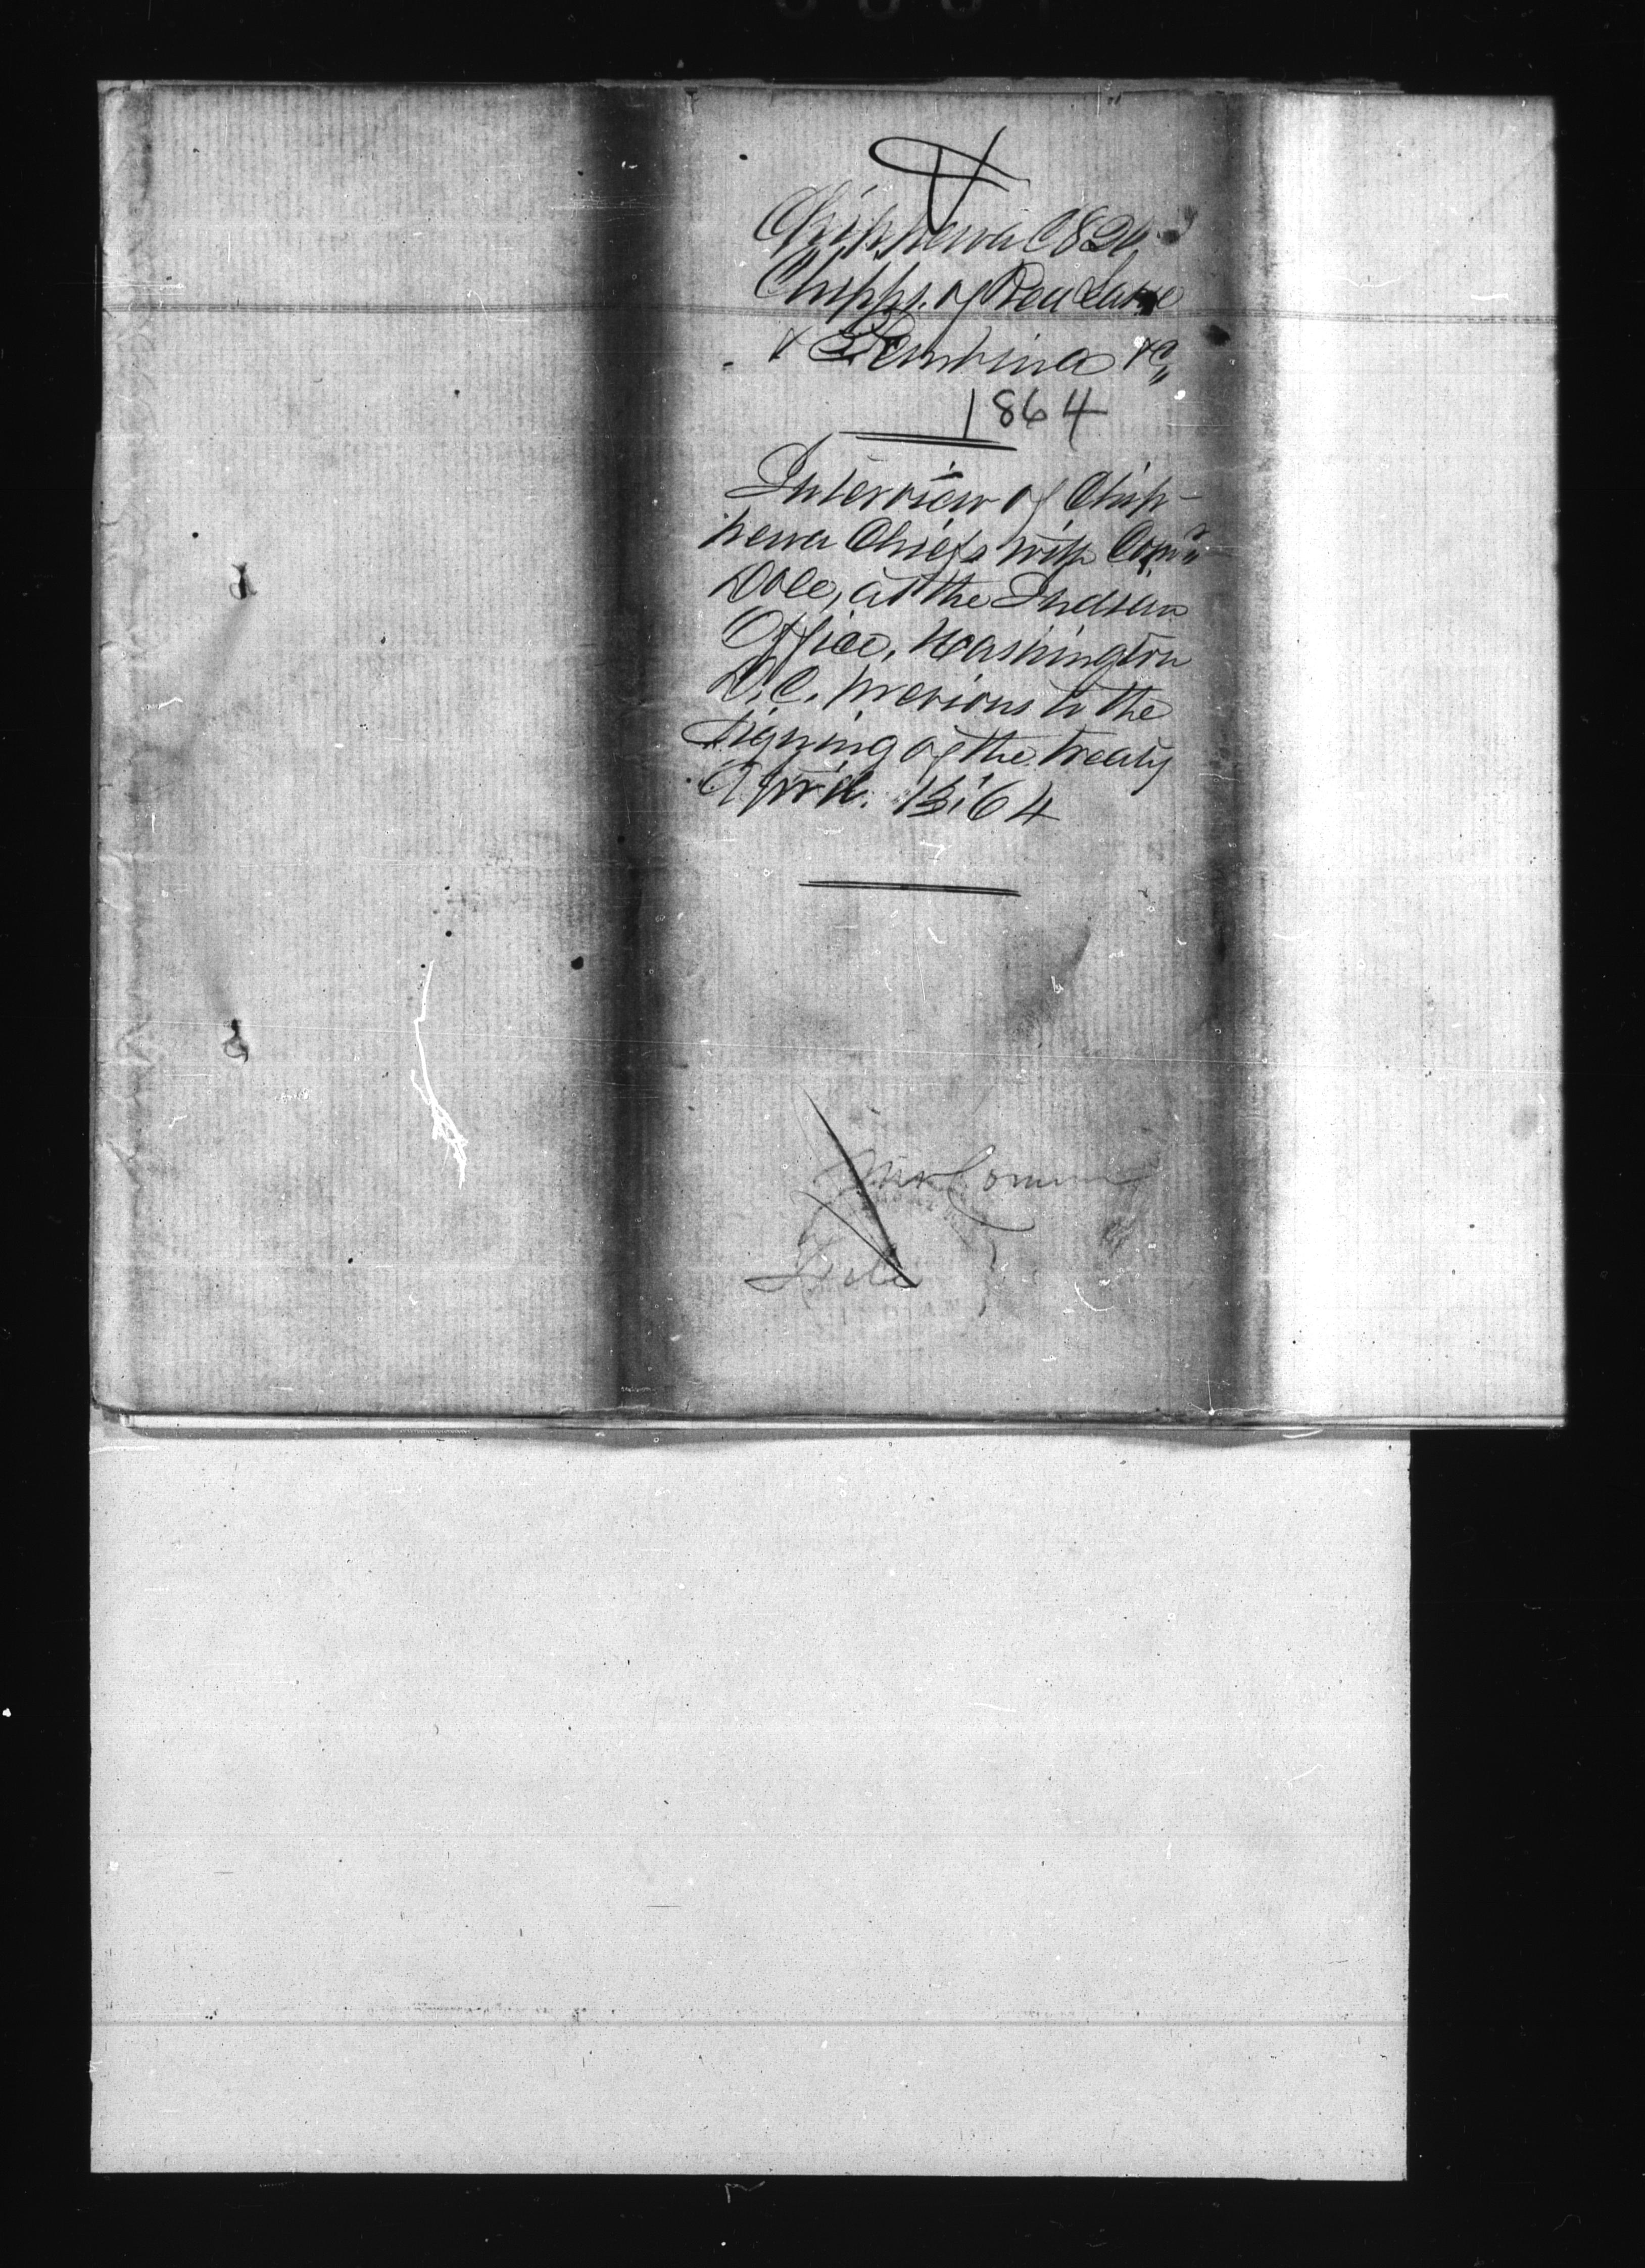 Chippewa C 826
Chipps. of Red Lake
& Pembina &c,,
1864
Interview of Chip-
pewa Chiefs with Com'r
Dole, at the Indian
Office, Washington
D.C. previous to the
signing of the treaty
April 13. 64
File